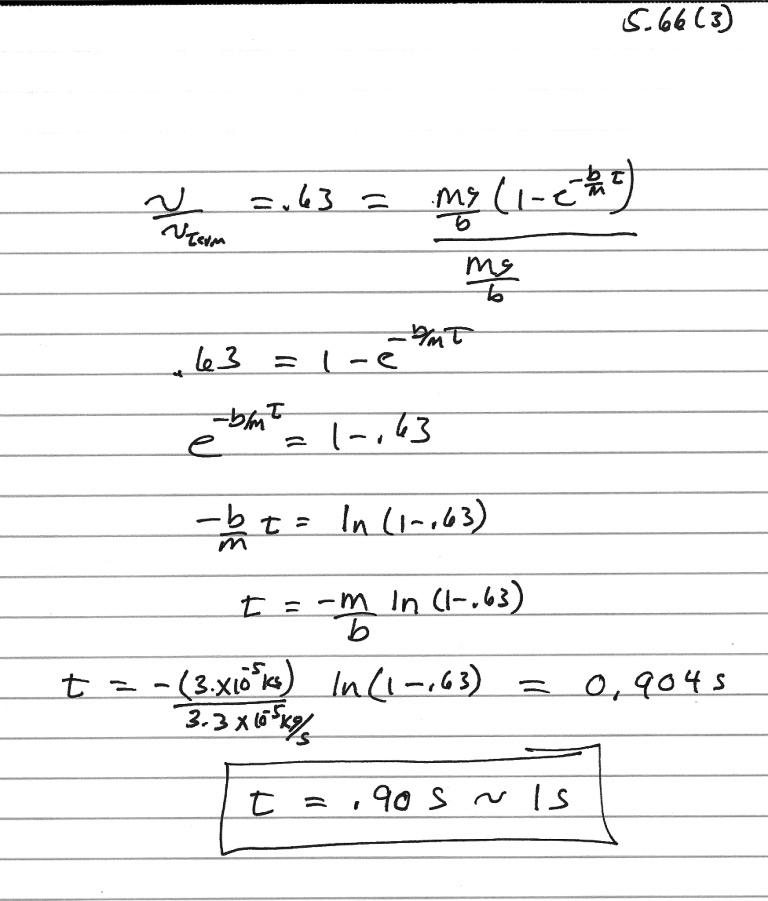 5.66(3)
v/v_Term = .63 = (mg/b (1-e^(-b/m t)))/(mg/b)
.63 = 1 - e^(-b/m t)
e^(-b/m t) = 1-.63
-b/m t = ln (1-.63)
t = -m/b ln (1-.63)
t = -(3.×10^-5 kg)/(3.3×10^-5 kg/s) ln(1-.63) = 0,904 s
t = .90 s ~ 1s